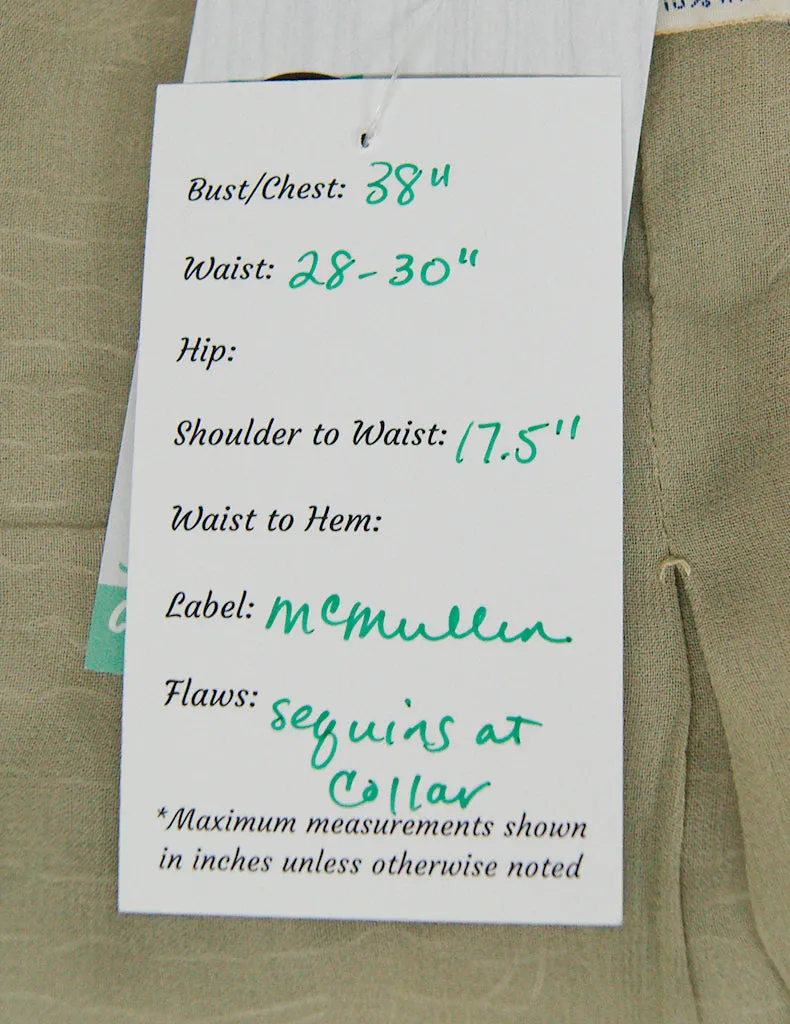 Bust/Chest: 38"
Waist: 28-30"
Hip:
Shoulder to Waist: 17.5"
Waist to Hem:
Label: McMullen
Flaws: sequins at
collar
*Maximum measurements shown
in inches unless otherwise noted